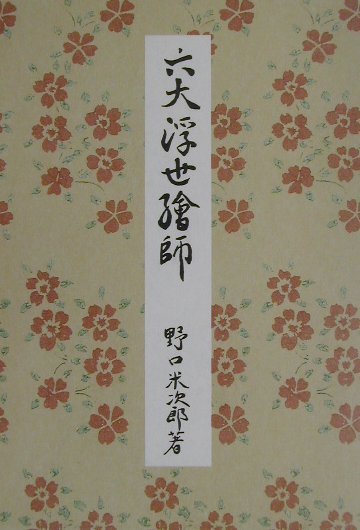 六大浮世繪師
野口米次郎著